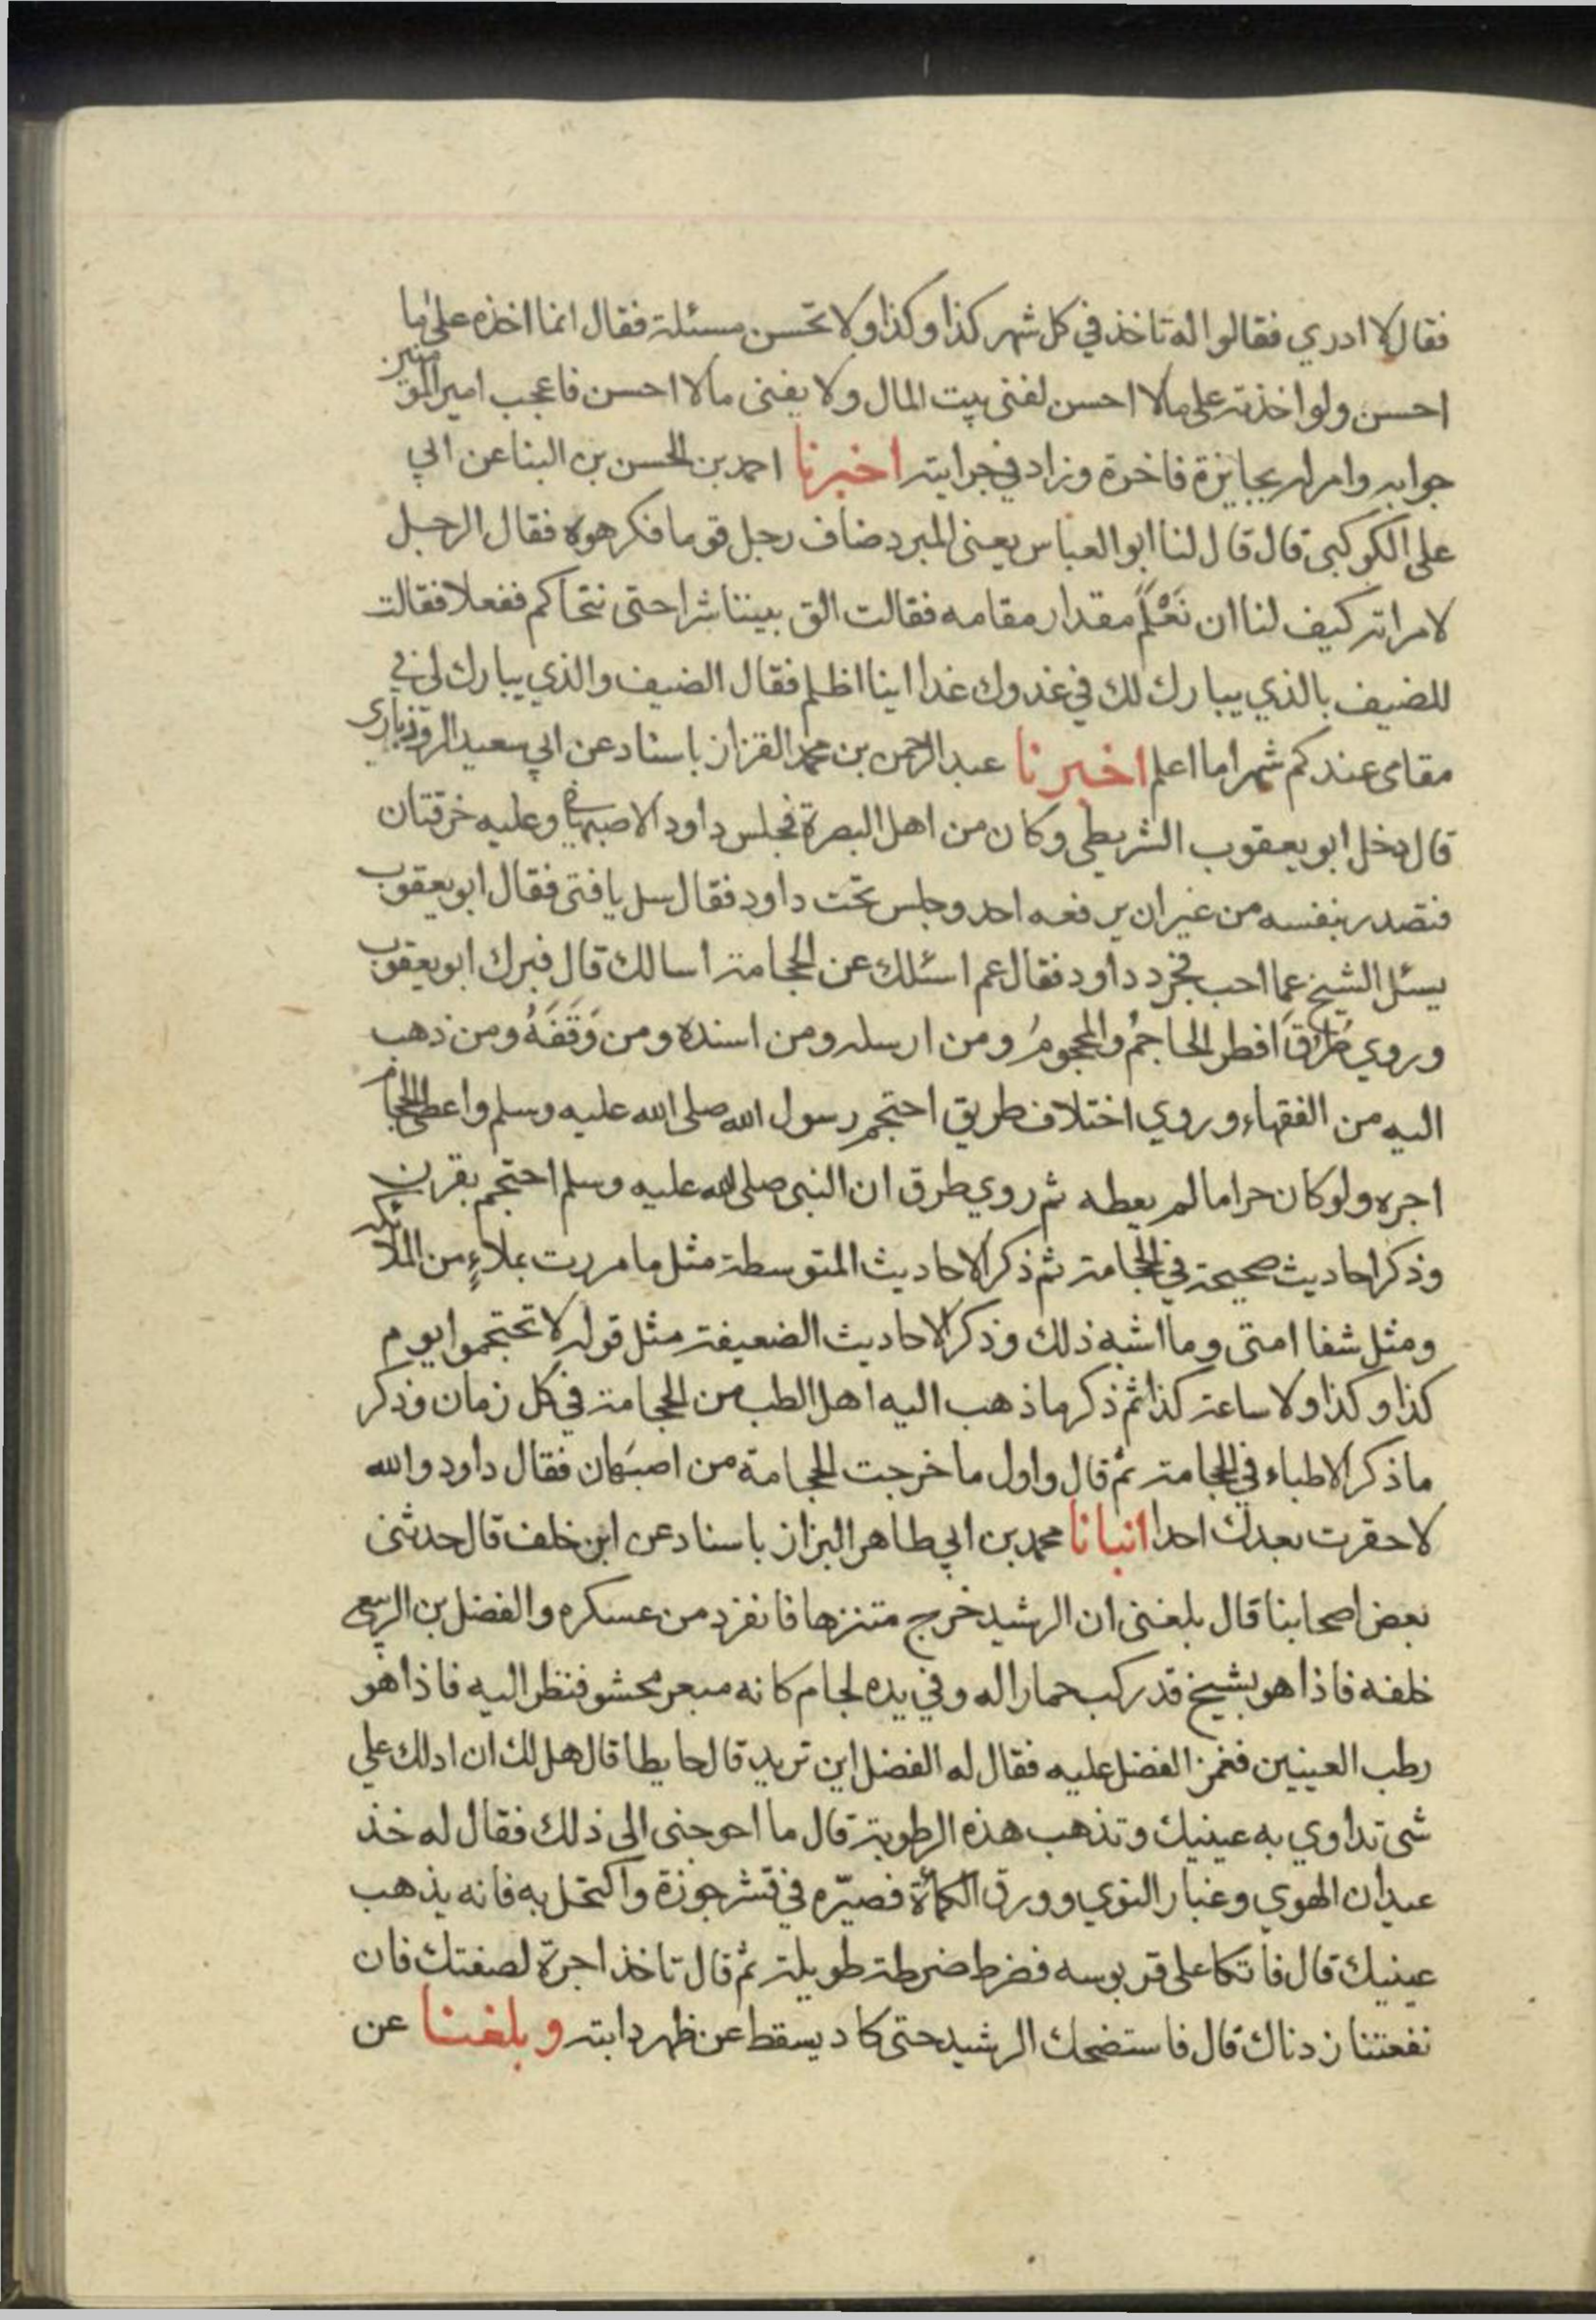 فقال لا ادري فقالوا له تاخذ في كل شهر كذا وكذا ولا تحسن مسئلة فقال انما اخذه على ما
احسن ولو اخذته على مالا احسن لفنى بيت المال ولا يفنى مالا احسن فاعجب امير المومنين
جوابه وامر له بجايزة فاخرة وزاد في جرايته اخبرنا احمد بن الحسن بن البنا عن ابي
على الكوكبى قال قال لنا ابو العباس يعنى المبرد ضاف رجل قوما فكرهوه فقال الرجل
لامراته كيف لنا ان نَعْلَم مقدار مقامه فقالت الق بيننا شرا حتى نتحاكم ففعلا فقالت
للضيف بالذي يبارك لك في غدوك غدا اينا اظلم فقال الضيف والذي يبارك لى في
مقامى عندكم شهرا ما اعلم اخبرنا عبد الرحمن بن محمد القزاز باسناد عن ابي سعيد الروذباري
قال دخل ابو يعقوب الشريطى وكان من اهل البصرة مجلس داود الاصبهاني وعليه خرقتان
فتصدر بنفسه من غير ان يرفعه احد وجلس تحت داود فقال سل يا فتى فقال ابو يعقوب
يسئل الشيخ عما احب فحرد داود فقال عم اسئلك عن الحجامة اسالك قال فبرك ابو يعقوب
وروي طرق افطر الحاجمُ والمحجومُ ومن ارسله ومن اسنده ومن وَقَفَهُ ومن ذهب
اليه من الفقهاء وروي اختلاف طريق احتجم رسول الله صلى الله عليه وسلم واعطى الحجام
اجره ولو كان حراما لم يعطه ثم روي طرق ان النبى صلى الله عليه وسلم احتجم بقرن
وذكر احاديث صحيحة في الحجامة ثم ذكر الاحاديث المتوسطة مثل ما مررت بملاءٍ من الملائكه
ومثل شفا امتى وما اشبه ذلك وذكر الاحاديث الضعيفة مثل قوله لا تحتجموا يوم
كذا وكذا ولا ساعة كذا ثم ذكر ما ذهب اليه اهل الطب من الحجامة في كل زمان وذكر
ما ذكر الاطباء في الحجامة ثم قال واول ما خرجت الحجامة من اصبَهان فقال داود والله
لا حقرت بعدك احدا انبانا محمد بن ابي طاهر البزاز باسناد عن ابن خلف قال حدثنى
بعض اصحابنا قال بلغنى ان الرشيد خرج متنزها فانفرد من عسكره والفضل بن الربيع
خلفه فاذا هو بشيخ قد ركب حمارا له وفي يده لجام كانه مبعر محشو فنظر اليه فاذا هو
رطب العينين فغمز الفضل عليه فقال له الفضل اين تريد قال حايطا قال هل لك ان ادلك على
شى تداوي به عينيك وتذهب هذه الرطوبة قال ما احوجنى الى ذلك فقال له خذ
عيدان الهوي وغبار النوي وورق الكمأة فصيّره في قشر جوزة واكتحل به فانه يذهب
عينيك قال فاتكا على قربوسه فضرط ضرطة طويلة ثم قال تاخذ اجرة لصفتك فان
نفعتنا زدناك قال فاستضحك الرشيد حتى كاد يسقط عن ظهر دابته وبلغنا عن